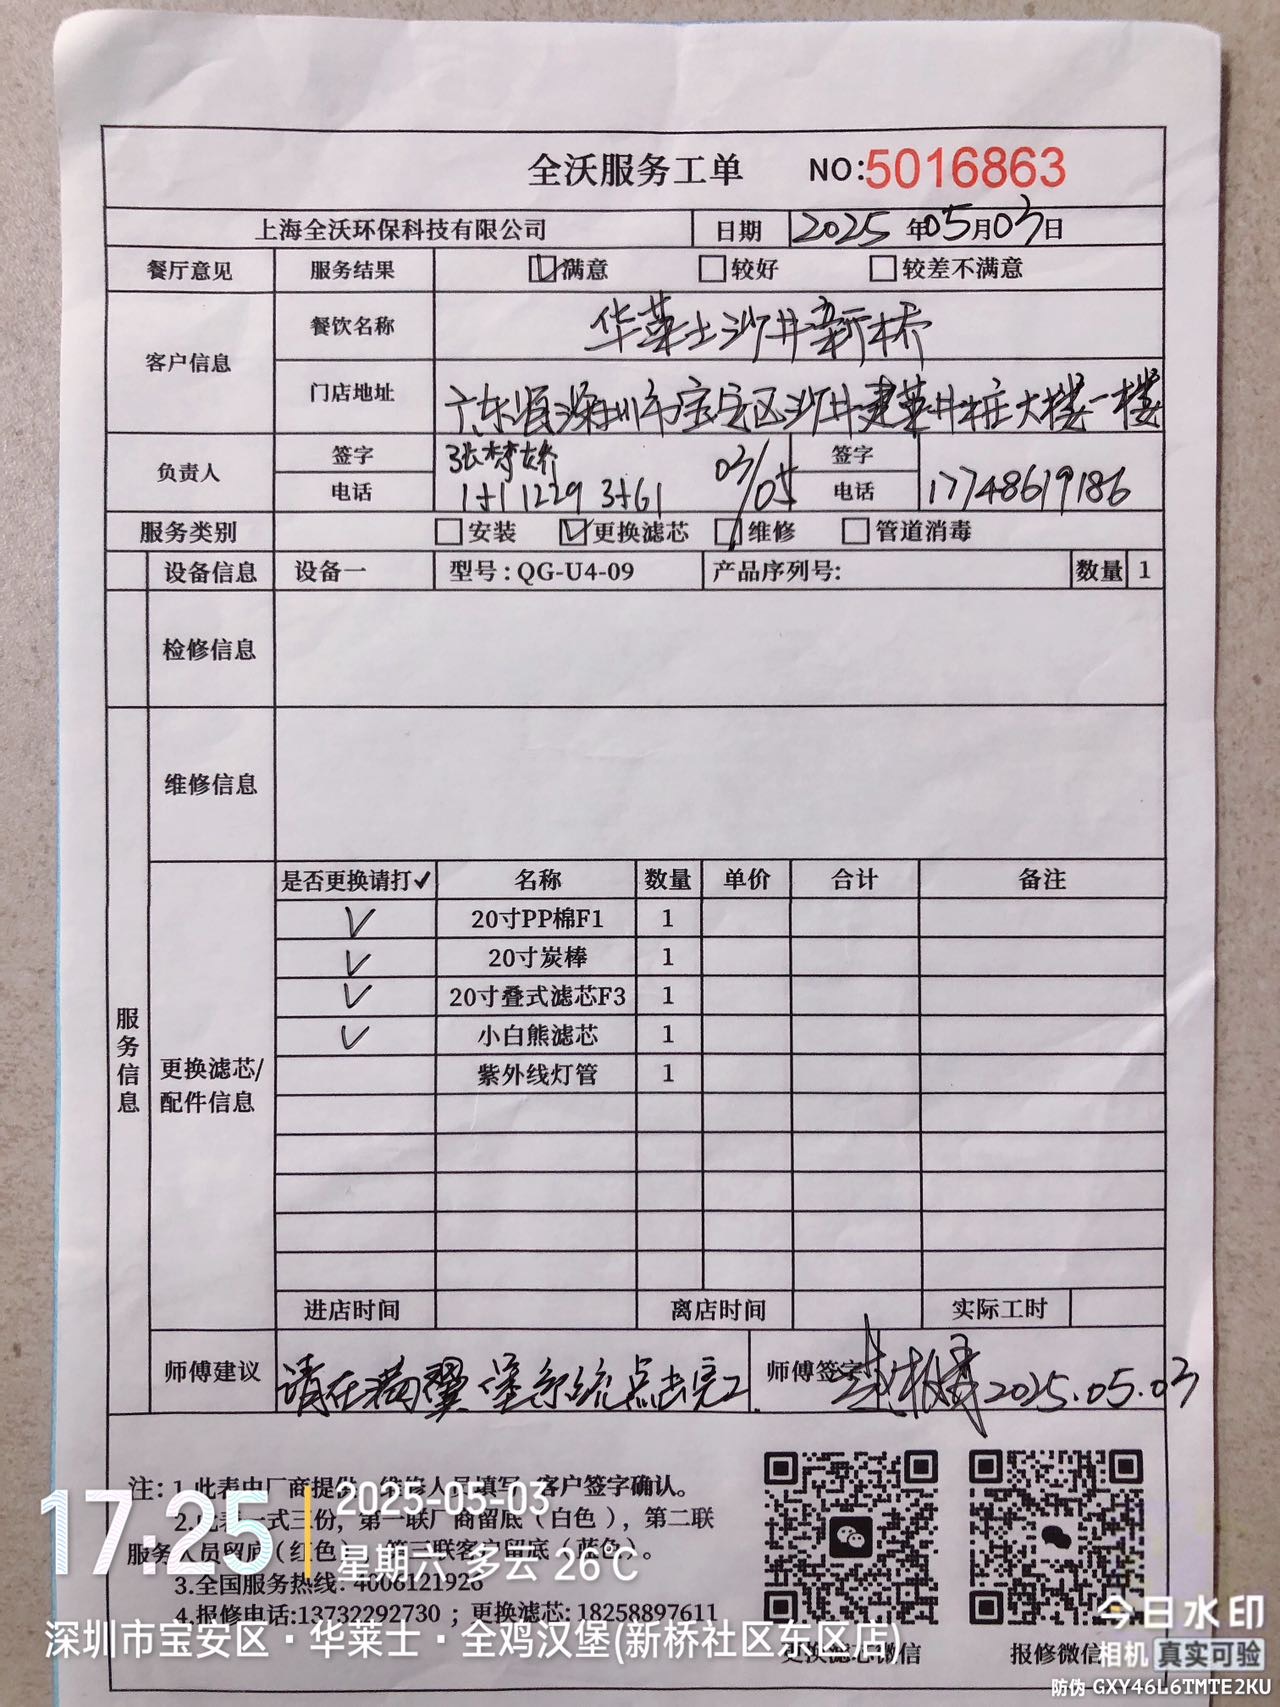 全沃服务工单 NO:5016863
上海全沃环保科技有限公司 日期 2025年05月03日
餐厅意见 服务结果 满意 较好 较差不满意
客户信息 餐饮名称 华莱士沙井新桥
门店地址 广东省深圳市宝安区沙井 大楼一楼
负责人 签字 张梦娇 03/05 签字
电话 电话 17748619186
服务类别 安装 更换滤芯 维修 管道消毒
设备信息 设备一 型号:QG-U4-09 产品序列号: 数量 1
检修信息
维修信息
服务信息
更换滤芯/配件信息
是否更换请打✓ 名称 数量 单价 合计 备注
✓ 20寸PP棉F1 1
✓ 20寸炭棒 1
✓ 20寸叠式滤芯F3 1
✓ 小白熊滤芯 1
紫外线灯管 1
进店时间 离店时间 实际工时
师傅建议 请在 堡系统点击完工 师傅签字 2025.05.03
注: 1.此表由厂商提供、维修人员填写,客户签字确认。
2.此表一式三份,第一联厂商留底(白色),第二联
服务人员留底(红色),第三联客户留底(蓝色)。
3.全国服务热线: 4006121926
4.报修电话:13732292730 ; 更换滤芯: 18258897611
更换滤芯微信 报修微信
17:25 2025-05-03
星期六 多云 26℃
深圳市宝安区·华莱士·全鸡汉堡(新桥社区东区店)
今日水印
相机 真实可验
防伪 GXY46L6TMTE2KU